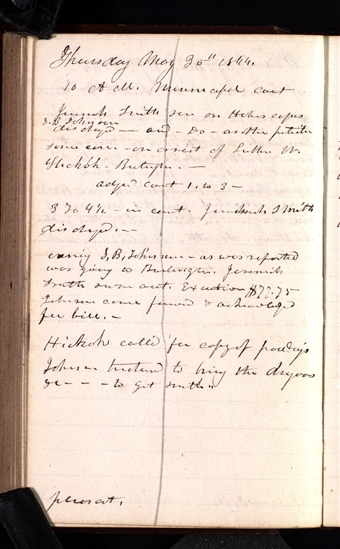 Thursday May 30th 1844.
10 A.M. Municipal court
Jeremiah Smith sen on Habeas corpus
J. B. Johnson
discharged — and - Do - another petition
same case - on arrest of Luther W.
Hickok - Butterfield. —
adjd court 1. to 3 -
3 to 4½ - in court. Jeremiah Smith
discharged. —
evening J. B. Johnson - as was reported
was going to Burlington. Jeremiah
Smith swore out. Execution $77.75
Johnson came forward & acknowledged
fee bill. -
Hickok called for copy of proceedings
Johnson threatened to bring the dragoons
&c - - - to get Smith.
pleasant.